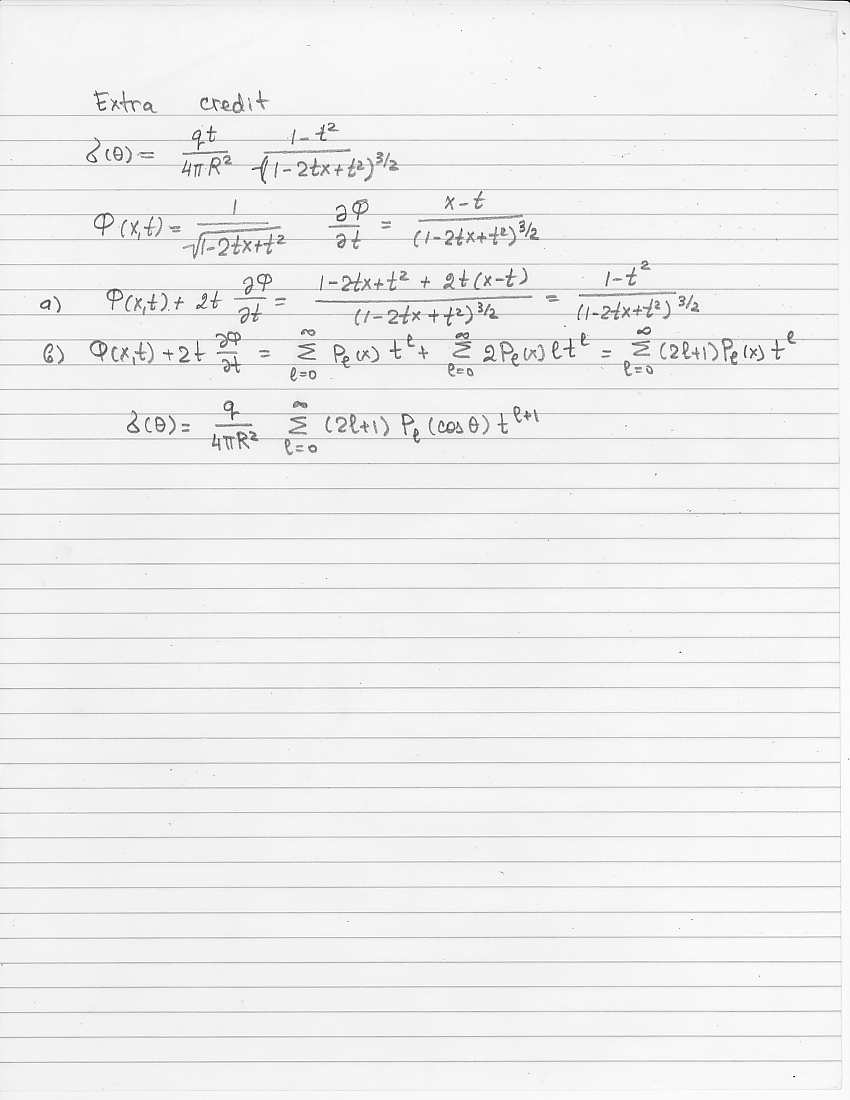 Extra credit
δ(θ) = qt/4πR² (1-t²)/(1-2tx+t²)^3/2
Φ(x,t) = 1/√(1-2tx+t²) ∂Φ/∂t = (x-t)/(1-2tx+t²)^3/2
a) Φ(x,t) + 2t ∂Φ/∂t = (1-2tx+t² + 2t(x-t))/(1-2tx+t²)^3/2 = (1-t²)/(1-2tx+t²)^3/2
b) Φ(x,t) + 2t ∂Φ/∂t = ∑_{ℓ=0}^∞ P_ℓ(x) t^ℓ + ∑_{ℓ=0}^∞ 2P_ℓ(x) ℓ t^ℓ = ∑_{ℓ=0}^∞ (2ℓ+1) P_ℓ(x) t^ℓ
δ(θ) = q/4πR² ∑_{ℓ=0}^∞ (2ℓ+1) P_ℓ(cosθ) t^{ℓ+1}